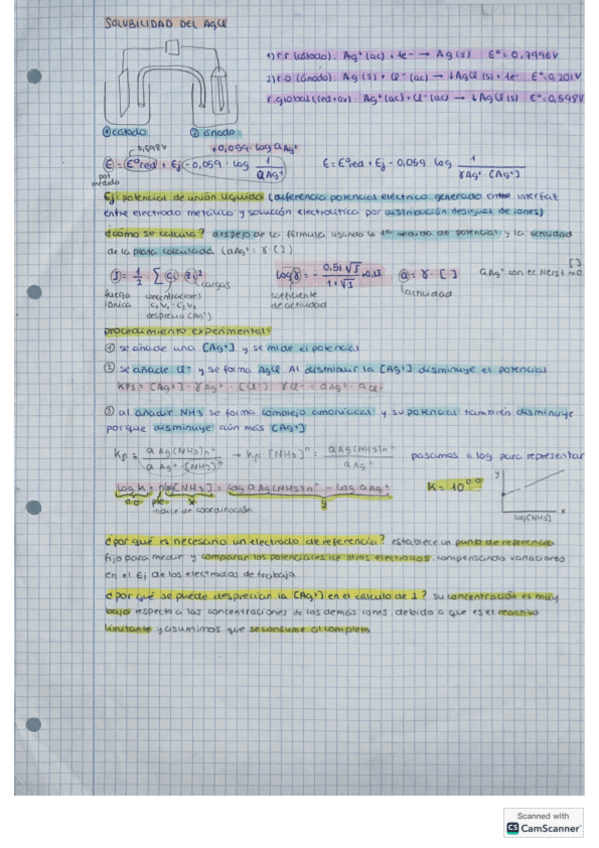 SOLUBILIDAD DEL AgCl
1) r.r (cátodo): Ag⁺(ac) + 1e⁻ → Ag(s) E° = 0,7996V
2) r.o (ánodo): Ag(s) + Cl⁻(ac) → ↓AgCl(s) + 1e⁻ E° = 0,201V
r.global (red+ox): Ag⁺(ac) + Cl⁻(ac) → ↓AgCl(s) E° = 0,598V
① cátodo ② ánodo
0,598V +0,059 · log aAg⁺
E = E°red + Ej - 0,059 · log 1/aAg⁺ E = E°red + Ej - 0,059 · log 1/γAg⁺ · [Ag⁺]
pot medido
Ej: potencial de unión líquida (diferencia potencial eléctrico generado entre interfaz
entre electrodo metálico y solución electrolítica por distribución desigual de iones)
¿cómo se calcula? despejo de la fórmula usando la 1ª medida de potencial y la actividad
de la plata calculada (aAg⁺ = γ [ ])
I = 1/2 · Σ Ci · Zi² cargas log γ = - 0,51 √I / 1 + √I a = γ · [ ] aAg⁺ con ec Nerst
fuerza iónica concentraciones C₁V₁ = C₂V₂ desprecio [Ag⁺] coeficiente de actividad actividad
procedimiento experimental:
① se añade una [Ag⁺] y se mide el potencial
② se añade Cl⁻ y se forma AgCl. Al disminuir la [Ag⁺] disminuye el potencial
KPS = [Ag⁺] · γAg⁺ · [Cl⁻] · γCl⁻ = aAg⁺ · aCl⁻
③ al añadir NH3 se forma complejo amoniacal y su potencial también disminuye
porque disminuye aún más [Ag⁺]
Kf = aAg(NH3)n⁺ / aAg⁺ · [NH3]ⁿ → Kf · [NH3]ⁿ = aAg(NH3)n⁺ / aAg⁺ pasamos a log para representar
log K + n log [NH3] = log aAg(NH3)n⁺ - log aAg⁺ K = 10^0.0 y
0.0 pte x y x
índice de coordinación log[NH3]
¿por qué es necesario un electrodo de referencia? establece un punto de referencia
fijo para medir y comparar los potenciales de otros electrodos, compensando variaciones
en el Ej de los electrodos de trabajo
¿por qué se puede despreciar la [Ag⁺] en el cálculo de I? su concentración es muy
baja respecto a las concentraciones de los demás iones, debido a que es el reactivo
limitante y asumimos que se consume al completo
Scanned with
CS CamScanner